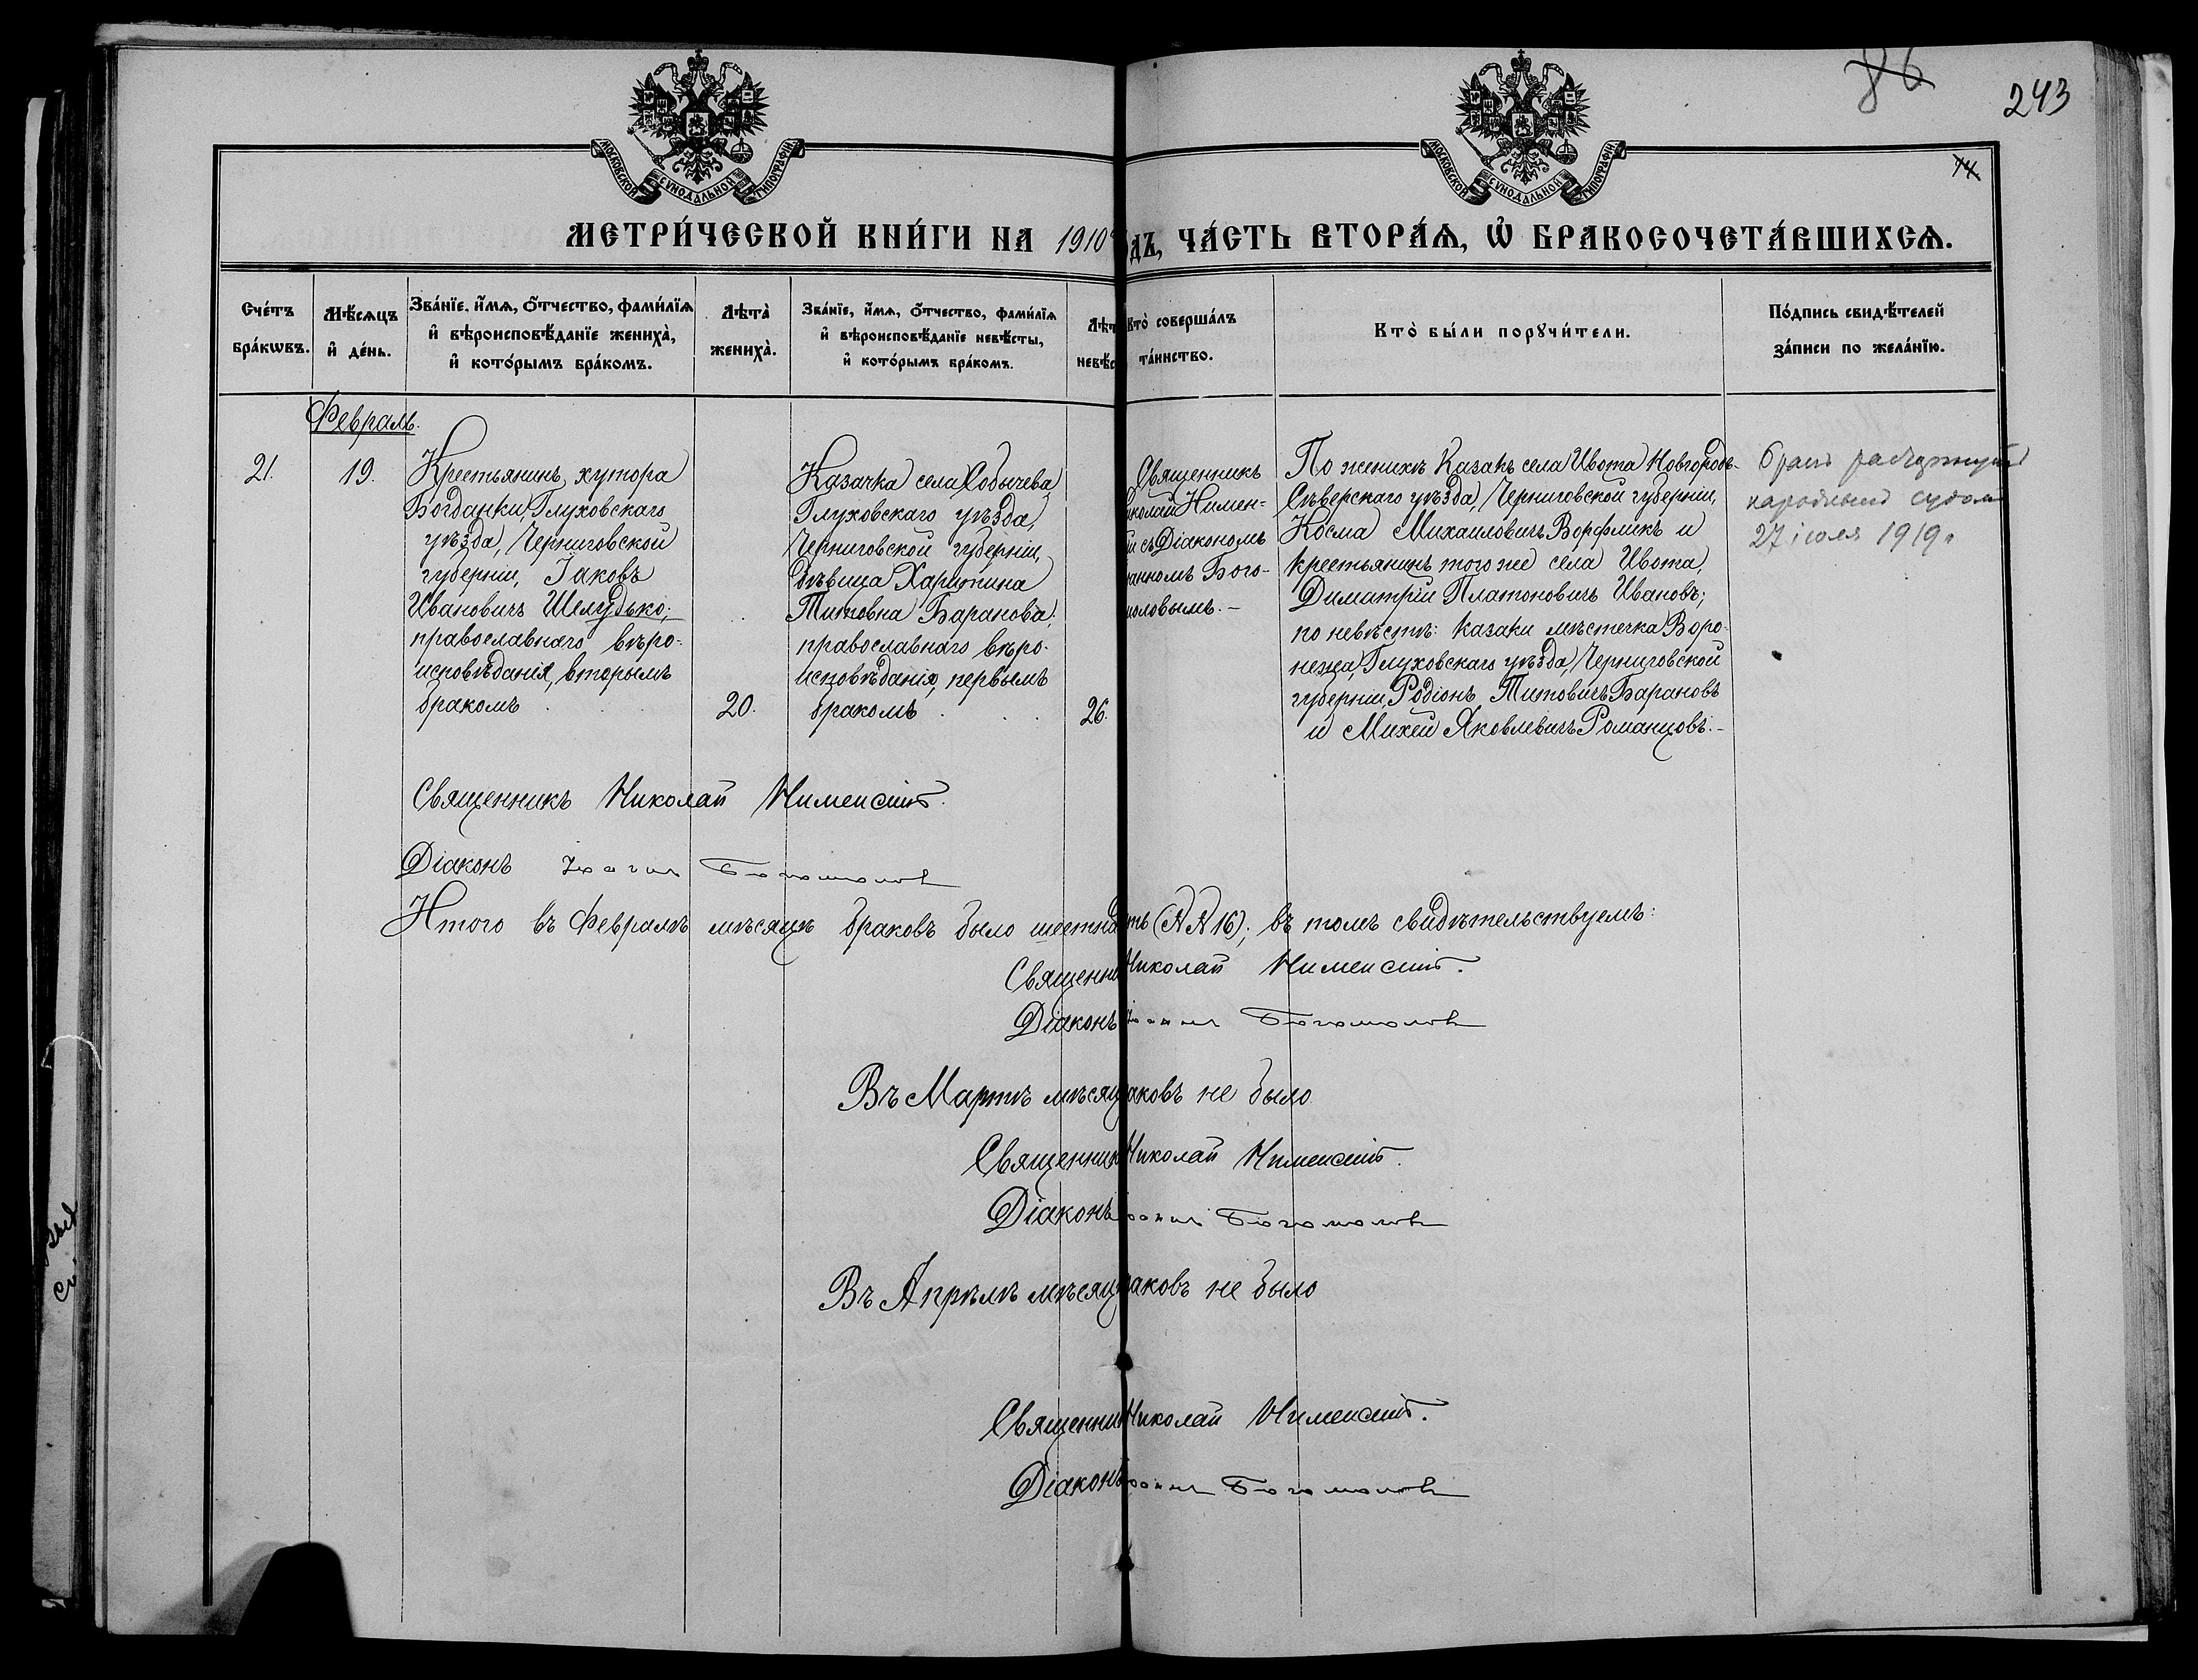 86
243
14
МОСКОВСКОЙ СѴНОДАЛЬНОЙ ТИПОГРАФІИ
МОСКОВСКОЙ СѴНОДАЛЬНОЙ ТИПОГРАФІИ
МЕТРИ́ЧЕСКОЙ КНИ́ГИ НА 1910 ДЪ, ЧА́СТЬ ВТОРА́Ѧ, Ѡ҆ БРАКОСОЧЕТА́ВШИХСѦ.
Сче́тъ
бра́кѡвъ.
Мѣ́сѧцъ
и҆ де́нь.
Зва́нїе, и҆́мѧ, ѻ҆́тчество, фами́лїѧ
и҆ вѣроисповѣ́данїе жениха̀,
и҆ кото́рымъ бра́комъ.
Лѣта̀
жениха̀.
Зва́нїе, и҆́мѧ, ѻ҆́тчество, фами́лїѧ
и҆ вѣроисповѣ́данїе невѣ́сты,
и҆ кото́рымъ бра́комъ.
Лѣт
невѣс
Кто̀ соверша́лъ
та́инство.
Кто̀ бы́ли порꙋчи́тели.
По́дпись свидѣ́телей
за́писи по жела́нїю.
Февраль.
21.
19.
Крестьянинъ хутора
Богданки, Глуховскаго
уѣзда, Черниговской
губерніи, Іаковъ
Ивановичъ Шелудько;
православнаго вѣро-
исповѣданія, вторымъ
бракомъ
20.
Казачка села Собычева
Глуховскаго уѣзда,
Черниговской губерніи,
дѣвица Харитина
Титовна Баранова;
православнаго вѣро-
исповѣданія, первымъ
бракомъ
26.
Священникъ
иколай Нимен-
ій съ Діакономъ
анномъ Бого-
моловымъ.-
По женихѣ Казакъ села Ивота Новгородъ-
Сѣверскаго уѣзда, Черниговской губерніи,
Косма Михаиловичъ Ворфликъ и
крестьянинъ того же села Ивота,
Димитрій Платоновичъ Ивановъ;
по невѣстѣ: казаки мѣстечка Воро-
нежа, Глуховскаго уѣзда, Черниговской
губерніи, Родіонъ Титовичъ Барановъ
и Михей Яковлевичъ Романцовъ.-
бракъ расторгнутъ
народным судом
27 іюля 1919 г
Священникъ Николай Нименскій.
Діаконъ Іоаннъ Богомолов
Итого въ Февралѣ мѣсяцѣ браковъ было шестна ть (№№ 16); въ томъ свидѣтельствуемъ:
Священни Николай Нименскій.
Діаконъ Іоаннъ Богомолов
Въ Мартѣ мѣсяц аковъ не было
Священник Николай Нименскій.
Діаконъ Іоаннъ Богомолов
Въ Апрѣлѣ мѣсяц аковъ не было
Священни Николай Нименскій.
Діаконъ Іоаннъ Богомолов